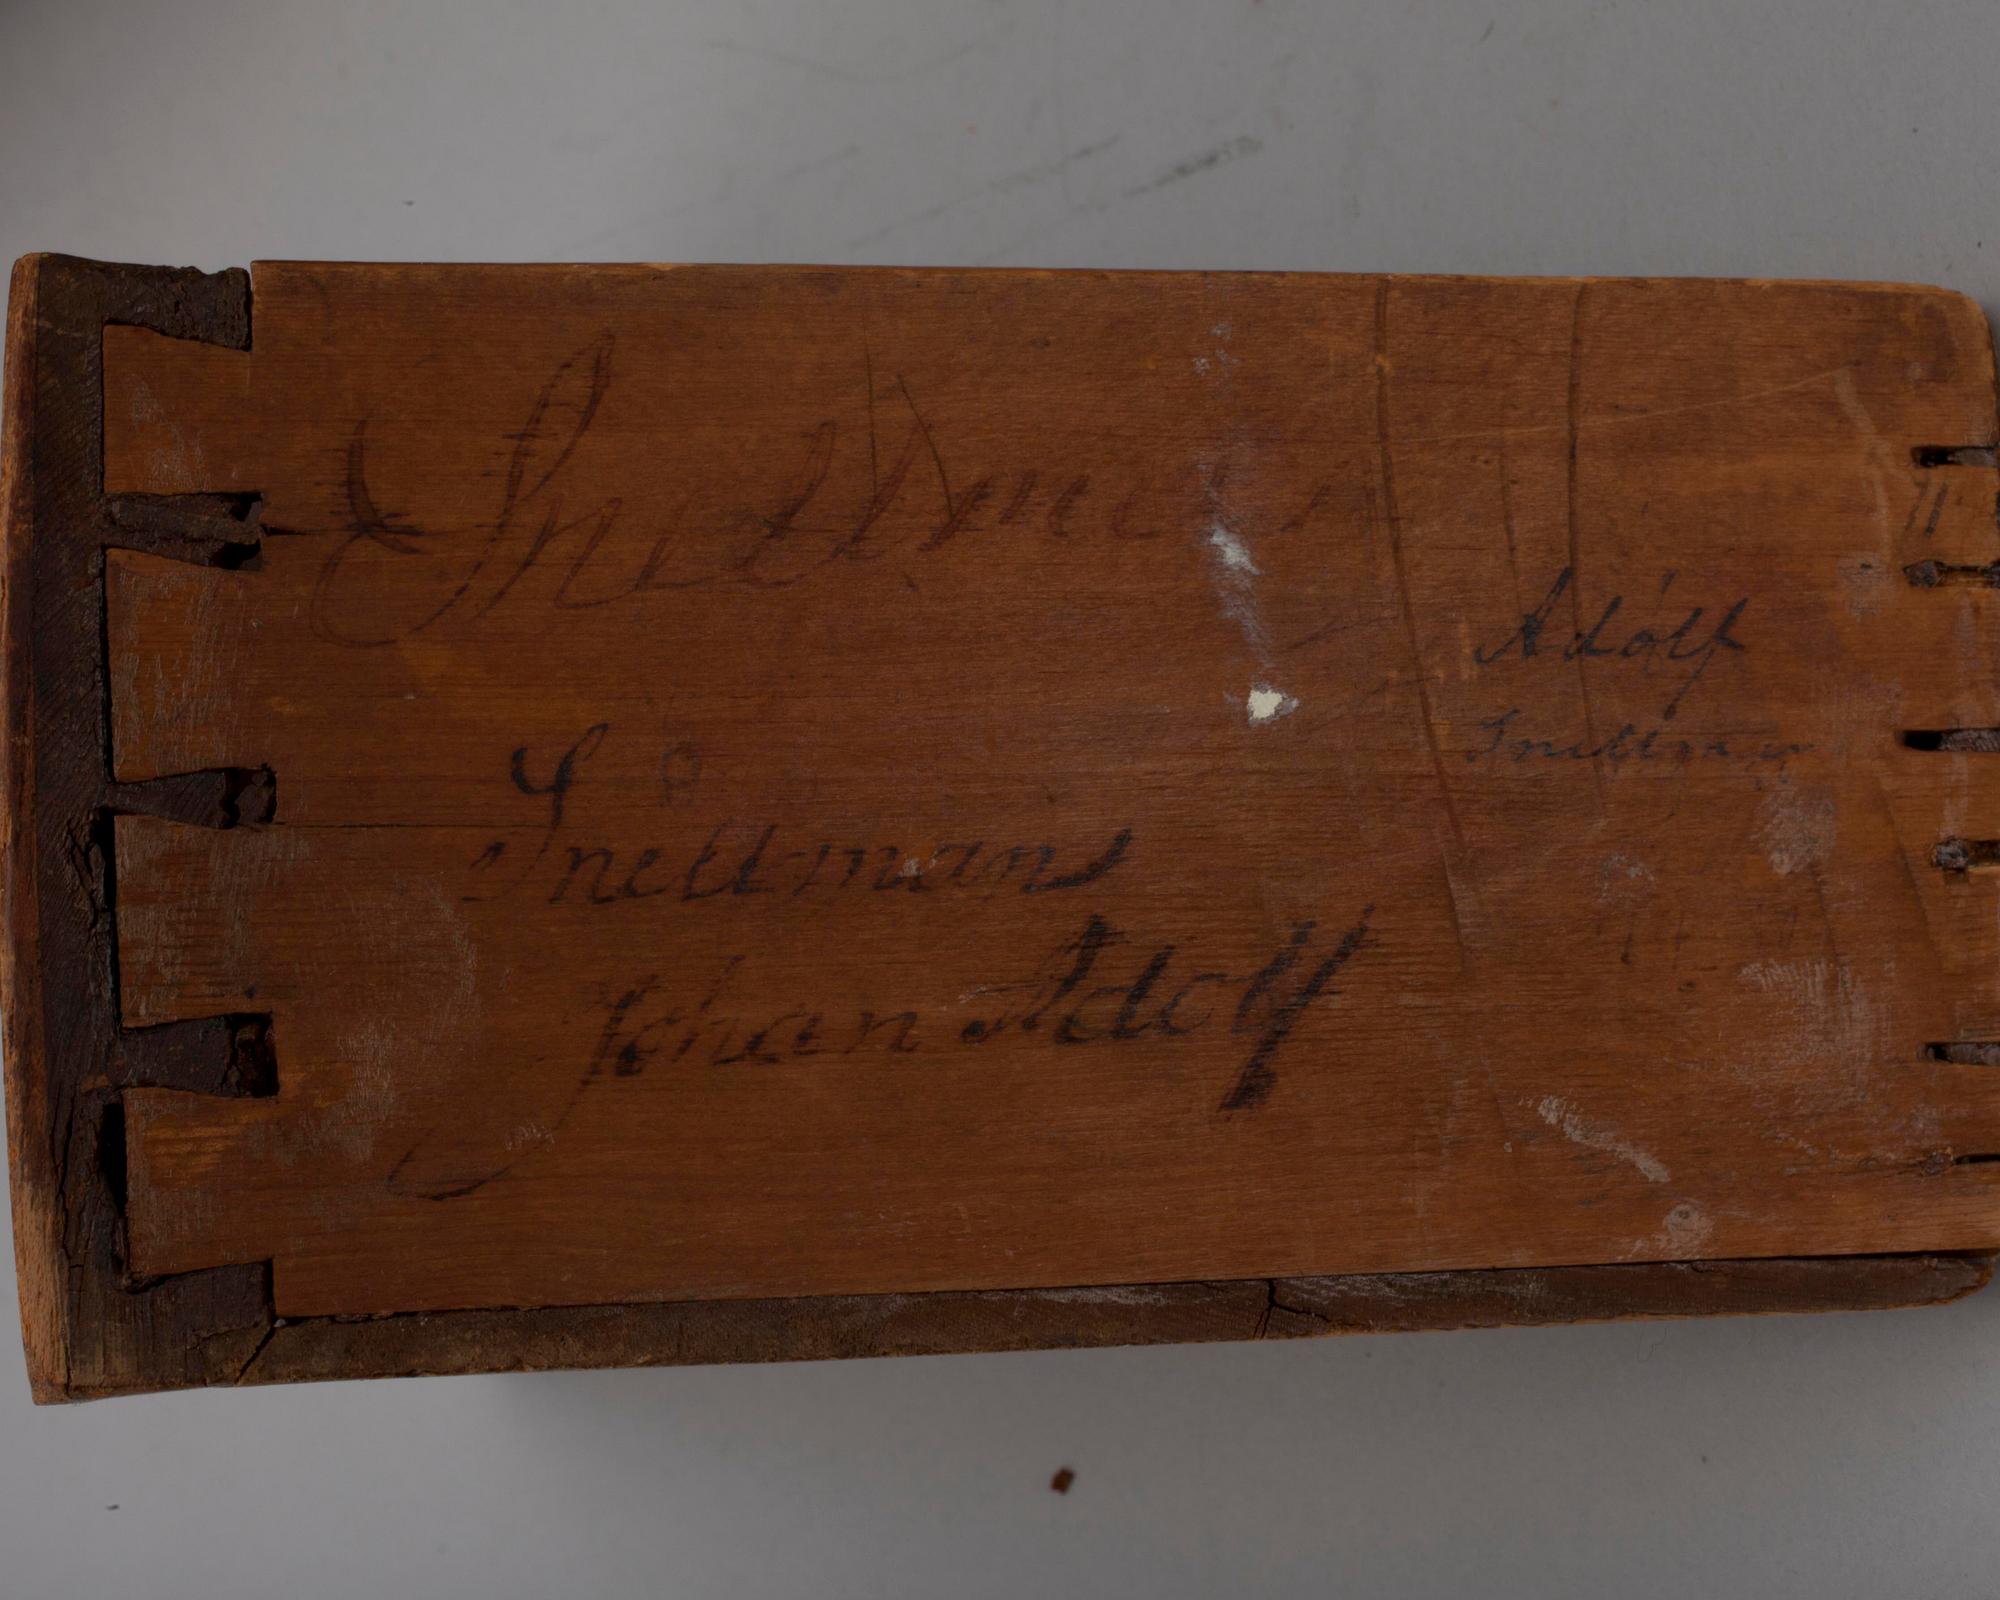 Snellman
Adolf
Snellman
Snellmans
Johan Adolf